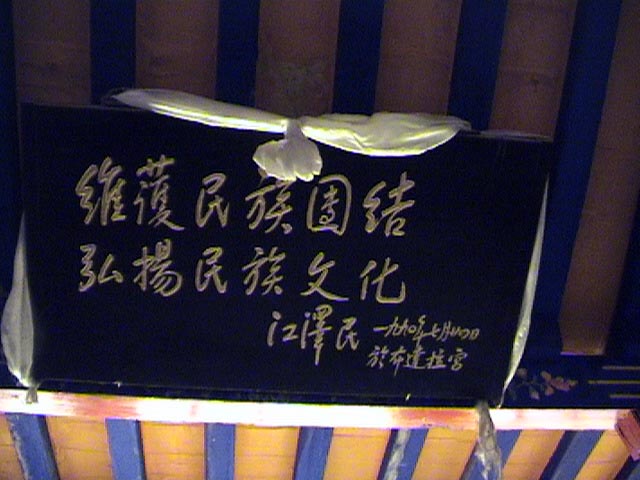 維護民族團結
弘揚民族文化
江澤民 一九九〇年七月廿四日
於布達拉宮